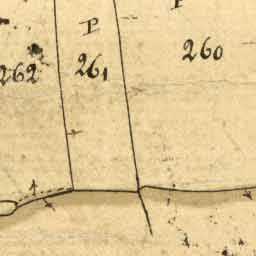 P
P
260
261
262